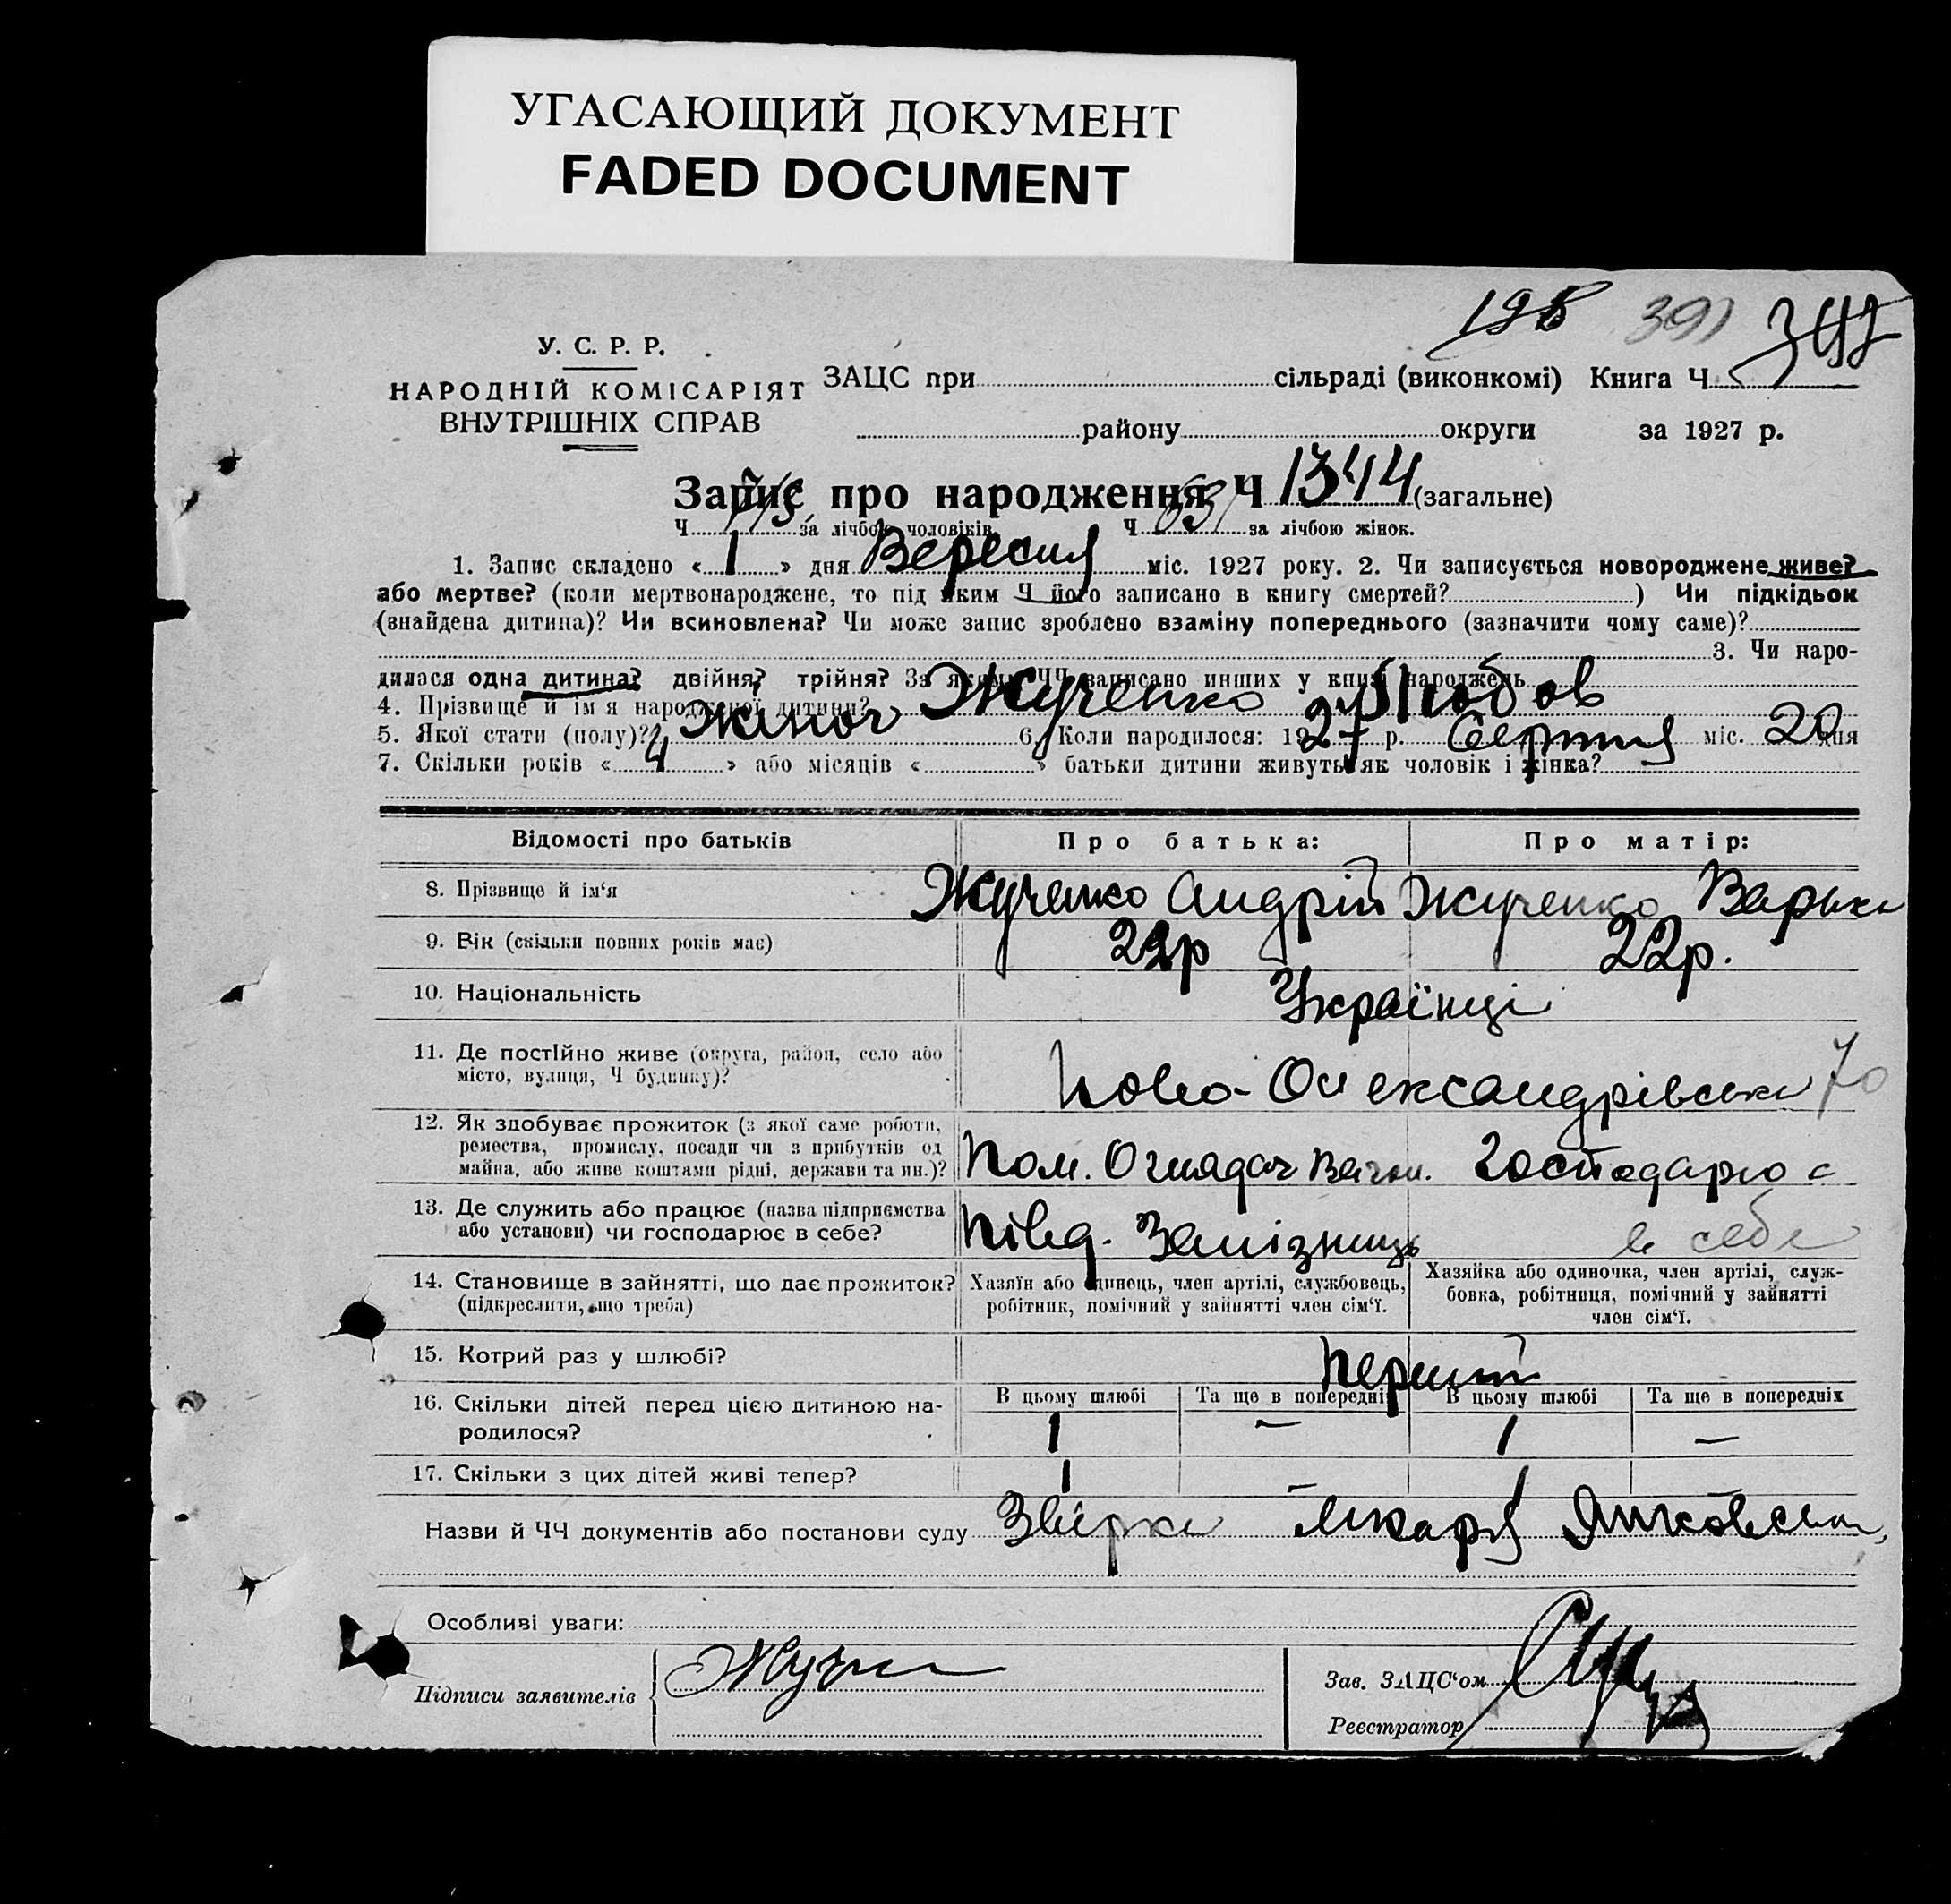 УГАСАЮЩИЙ ДОКУМЕНТ
FADED DOCUMENT
391
У. С. Р. Р.
НАРОДНІЙ КОМІСАРІЯТ
ВНУТРІШНІХ СПРАВ
ЗАЦС при сільраді (виконкомі) Книга Ч
району округи за 1927 р.
Запис про народження Ч 1344 (загальне)
Ч 713 за лічбою чоловіків. Ч 631 за лічбою жінок.
1. Запис складено « 1 » дня Вересня міс. 1927 року. 2. Чи записується новороджене живе?
або мертве? (коли мертвонароджене, то під яким Ч його записано в книгу смертей? ) Чи підкідьок
(знайдена дитина)? Чи всиновлена? Чи може запис зроблено взаміну попереднього (зазначити чому саме)?
3. Чи наро-
дилася одна дитина? двійня? трійня? За якими ЧЧ записано инших у книзі народжень
4. Прізвище й ім'я народженої дитини? Жученко Любов
5. Якої стати (полу)? Жіноч 6. Коли народилося: 1927 р. Серпня міс. 20 дня
7. Скільки років « 4 » або місяців « » батьки дитини живуть як чоловік і жінка?
Відомості про батьків Про батька: Про матір:
8. Прізвище й ім'я Жученко Андрій Жученко Варька
9. Вік (скільки повних років має) р 22р.
10. Національність Українці
11. Де постійно живе (округа, район, село або
місто, вулиця, Ч будинку)? Ново-Олександрівська 70
12. Як здобуває прожиток (з якої саме роботи,
ремества, промислу, посади чи з прибутків од
майна, або живе коштами рідні, держави та ин.)? Пом. Оглядач Вагон. Господарює
13. Де служить або працює (назва підприємства
або установи) чи господарює в себе? Півд. Залізниць в себе
14. Становище в зайнятті, що дає прожиток?
(підкреслити, що треба)
Хазяїн або одинець, член артілі, службовець,
робітник, помічний у зайнятті член сім'ї.
Хазяйка або одиночка, член артілі, служ-
бовка, робітниця, помічний у зайнятті
член сім'ї.
15. Котрий раз у шлюбі? Перший
16. Скільки дітей перед цією дитиною на-
родилося?
В цьому шлюбі Та ще в попередніх В цьому шлюбі Та ще в попередніх
1 — 1 —
17. Скільки з цих дітей живі тепер? 1 — 1
Назви й ЧЧ документів або постанови суду Звірка лікаря
Особливі уваги:
Підписи заявителів
Зав. ЗАЦС'ом
Реєстратор